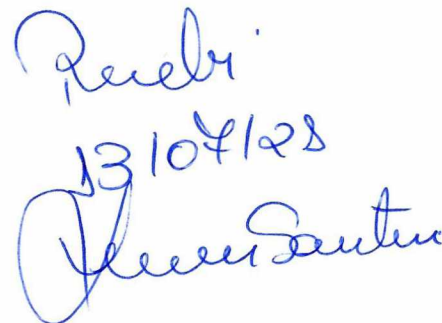 Recebi
13/07/28
Santos